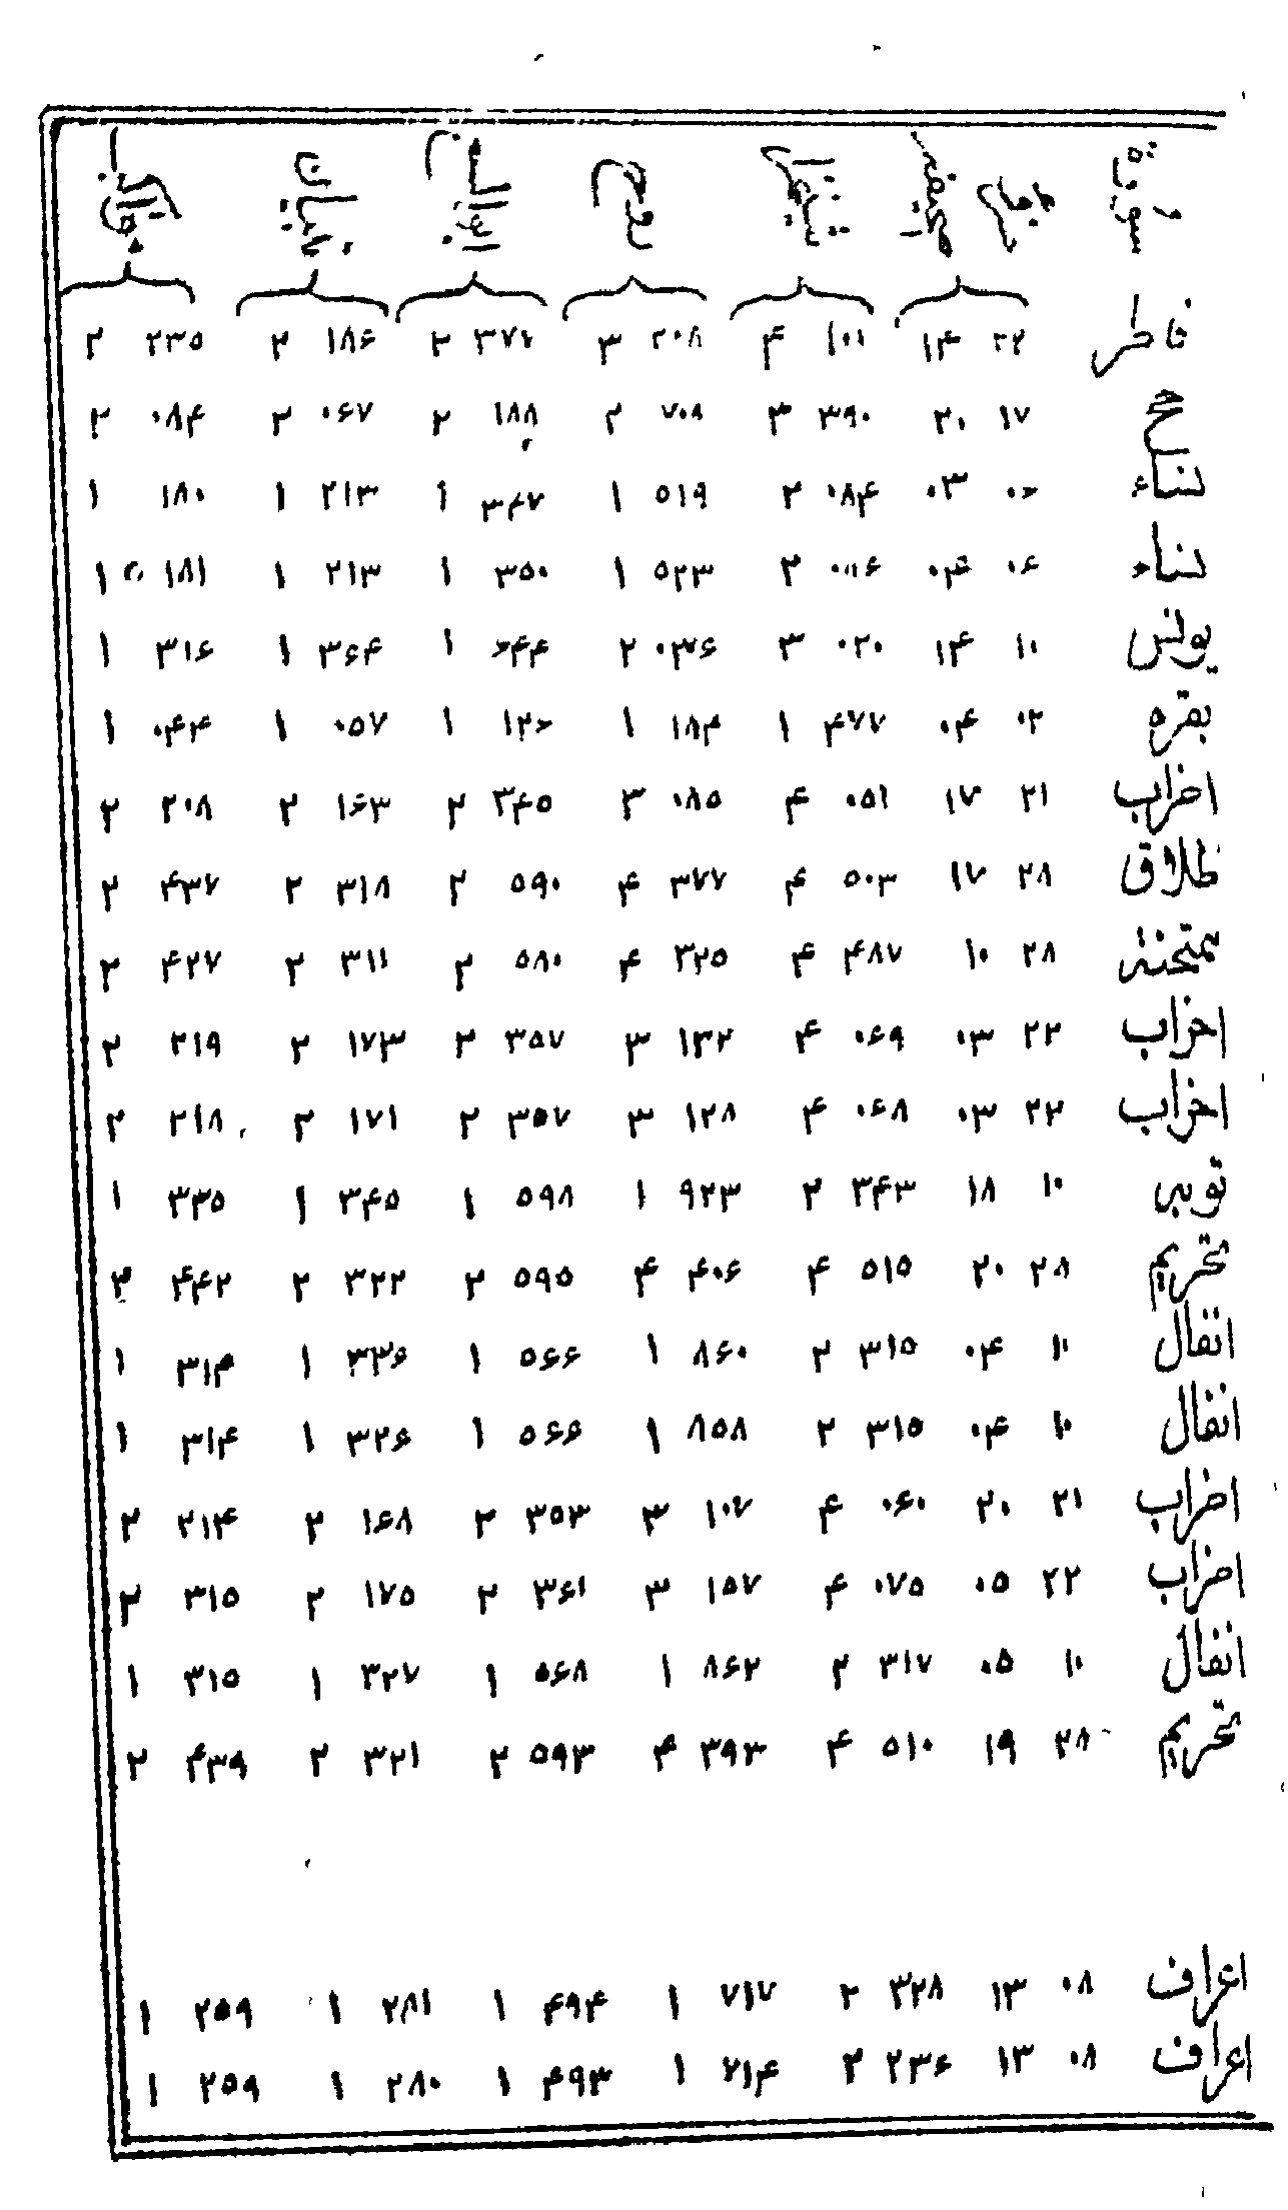 سورة
فاطر ۲۲ ۱۴ ۱۰۱ ۴ ۲۰۸ ۳ ۳۷۴ ۲ ۱۸۶ ۲ ۲۳۵ ۲
حج ۱۷ ۲۰ ۳۹۰ ۳ ۷۰۹ ۲ ۱۸۸ ۲ ۰۶۷ ۲ ۰۸۴ ۲
نساء ۰۶ ۰۳ ۰۸۴ ۲ ۵۱۹ ۱ ۳۴۷ ۱ ۲۱۳ ۱ ۱۸۰ ۱
نساء ۰۶ ۰۴ ۰۸۶ ۲ ۵۲۳ ۱ ۳۵۰ ۱ ۲۱۳ ۱ ۱۸۱ ۱
یونس ۱۰ ۱۴ ۰۲۰ ۳ ۰۳۶ ۲ ۶۴۴ ۱ ۳۶۴ ۱ ۳۱۶ ۱
بقره ۰۲ ۰۴ ۴۷۷ ۱ ۱۸۴ ۱ ۱۲۶ ۱ ۰۵۷ ۱ ۰۴۴ ۱
احزاب ۲۱ ۱۷ ۰۵۱ ۴ ۰۸۵ ۳ ۳۴۵ ۲ ۱۶۳ ۲ ۲۰۸ ۲
طلاق ۲۸ ۱۷ ۵۰۳ ۴ ۳۷۷ ۴ ۵۹۰ ۲ ۳۱۸ ۲ ۴۳۷ ۲
ممتحنة ۲۸ ۱۰ ۴۸۷ ۴ ۳۲۵ ۴ ۵۸۰ ۲ ۳۱۱ ۲ ۴۲۷ ۲
احزاب ۲۲ ۰۳ ۰۶۹ ۴ ۱۳۲ ۳ ۳۵۷ ۲ ۱۷۳ ۲ ۲۱۹ ۲
احزاب ۲۲ ۰۳ ۰۶۸ ۴ ۱۲۸ ۳ ۳۵۷ ۲ ۱۷۱ ۲ ۲۱۸ ۲
توبه ۱۰ ۱۸ ۳۴۳ ۲ ۹۲۳ ۱ ۵۹۸ ۱ ۳۴۵ ۱ ۳۳۵ ۱
تحریم ۲۸ ۲۰ ۵۱۵ ۴ ۴۰۶ ۴ ۵۹۵ ۲ ۳۲۲ ۲ ۴۴۲ ۲
انفال ۱۰ ۰۴ ۳۱۵ ۲ ۸۶۰ ۱ ۵۶۶ ۱ ۳۳۶ ۱ ۳۱۴ ۱
انفال ۱۰ ۰۴ ۳۱۵ ۲ ۸۵۸ ۱ ۵۶۵ ۱ ۳۲۶ ۱ ۳۱۴ ۱
احزاب ۲۱ ۲۰ ۰۶۰ ۴ ۱۰۷ ۳ ۳۵۳ ۲ ۱۶۸ ۲ ۲۱۴ ۲
احزاب ۲۲ ۰۵ ۰۷۵ ۴ ۱۵۷ ۳ ۳۶۱ ۲ ۱۷۵ ۲ ۳۱۵ ۲
انفال ۱۰ ۰۵ ۳۱۷ ۲ ۸۶۲ ۱ ۵۶۸ ۱ ۳۲۷ ۱ ۳۱۵ ۱
تحریم ۲۸ ۱۹ ۵۱۰ ۴ ۳۹۳ ۴ ۵۹۳ ۲ ۳۲۱ ۲ ۴۳۹ ۲
اعراف ۰۸ ۱۳ ۳۲۸ ۲ ۷۱۷ ۱ ۴۹۴ ۱ ۲۸۱ ۱ ۲۵۹ ۱
اعراف ۰۸ ۱۳ ۲۳۶ ۲ ۷۱۴ ۱ ۴۹۳ ۱ ۲۸۰ ۱ ۲۵۹ ۱